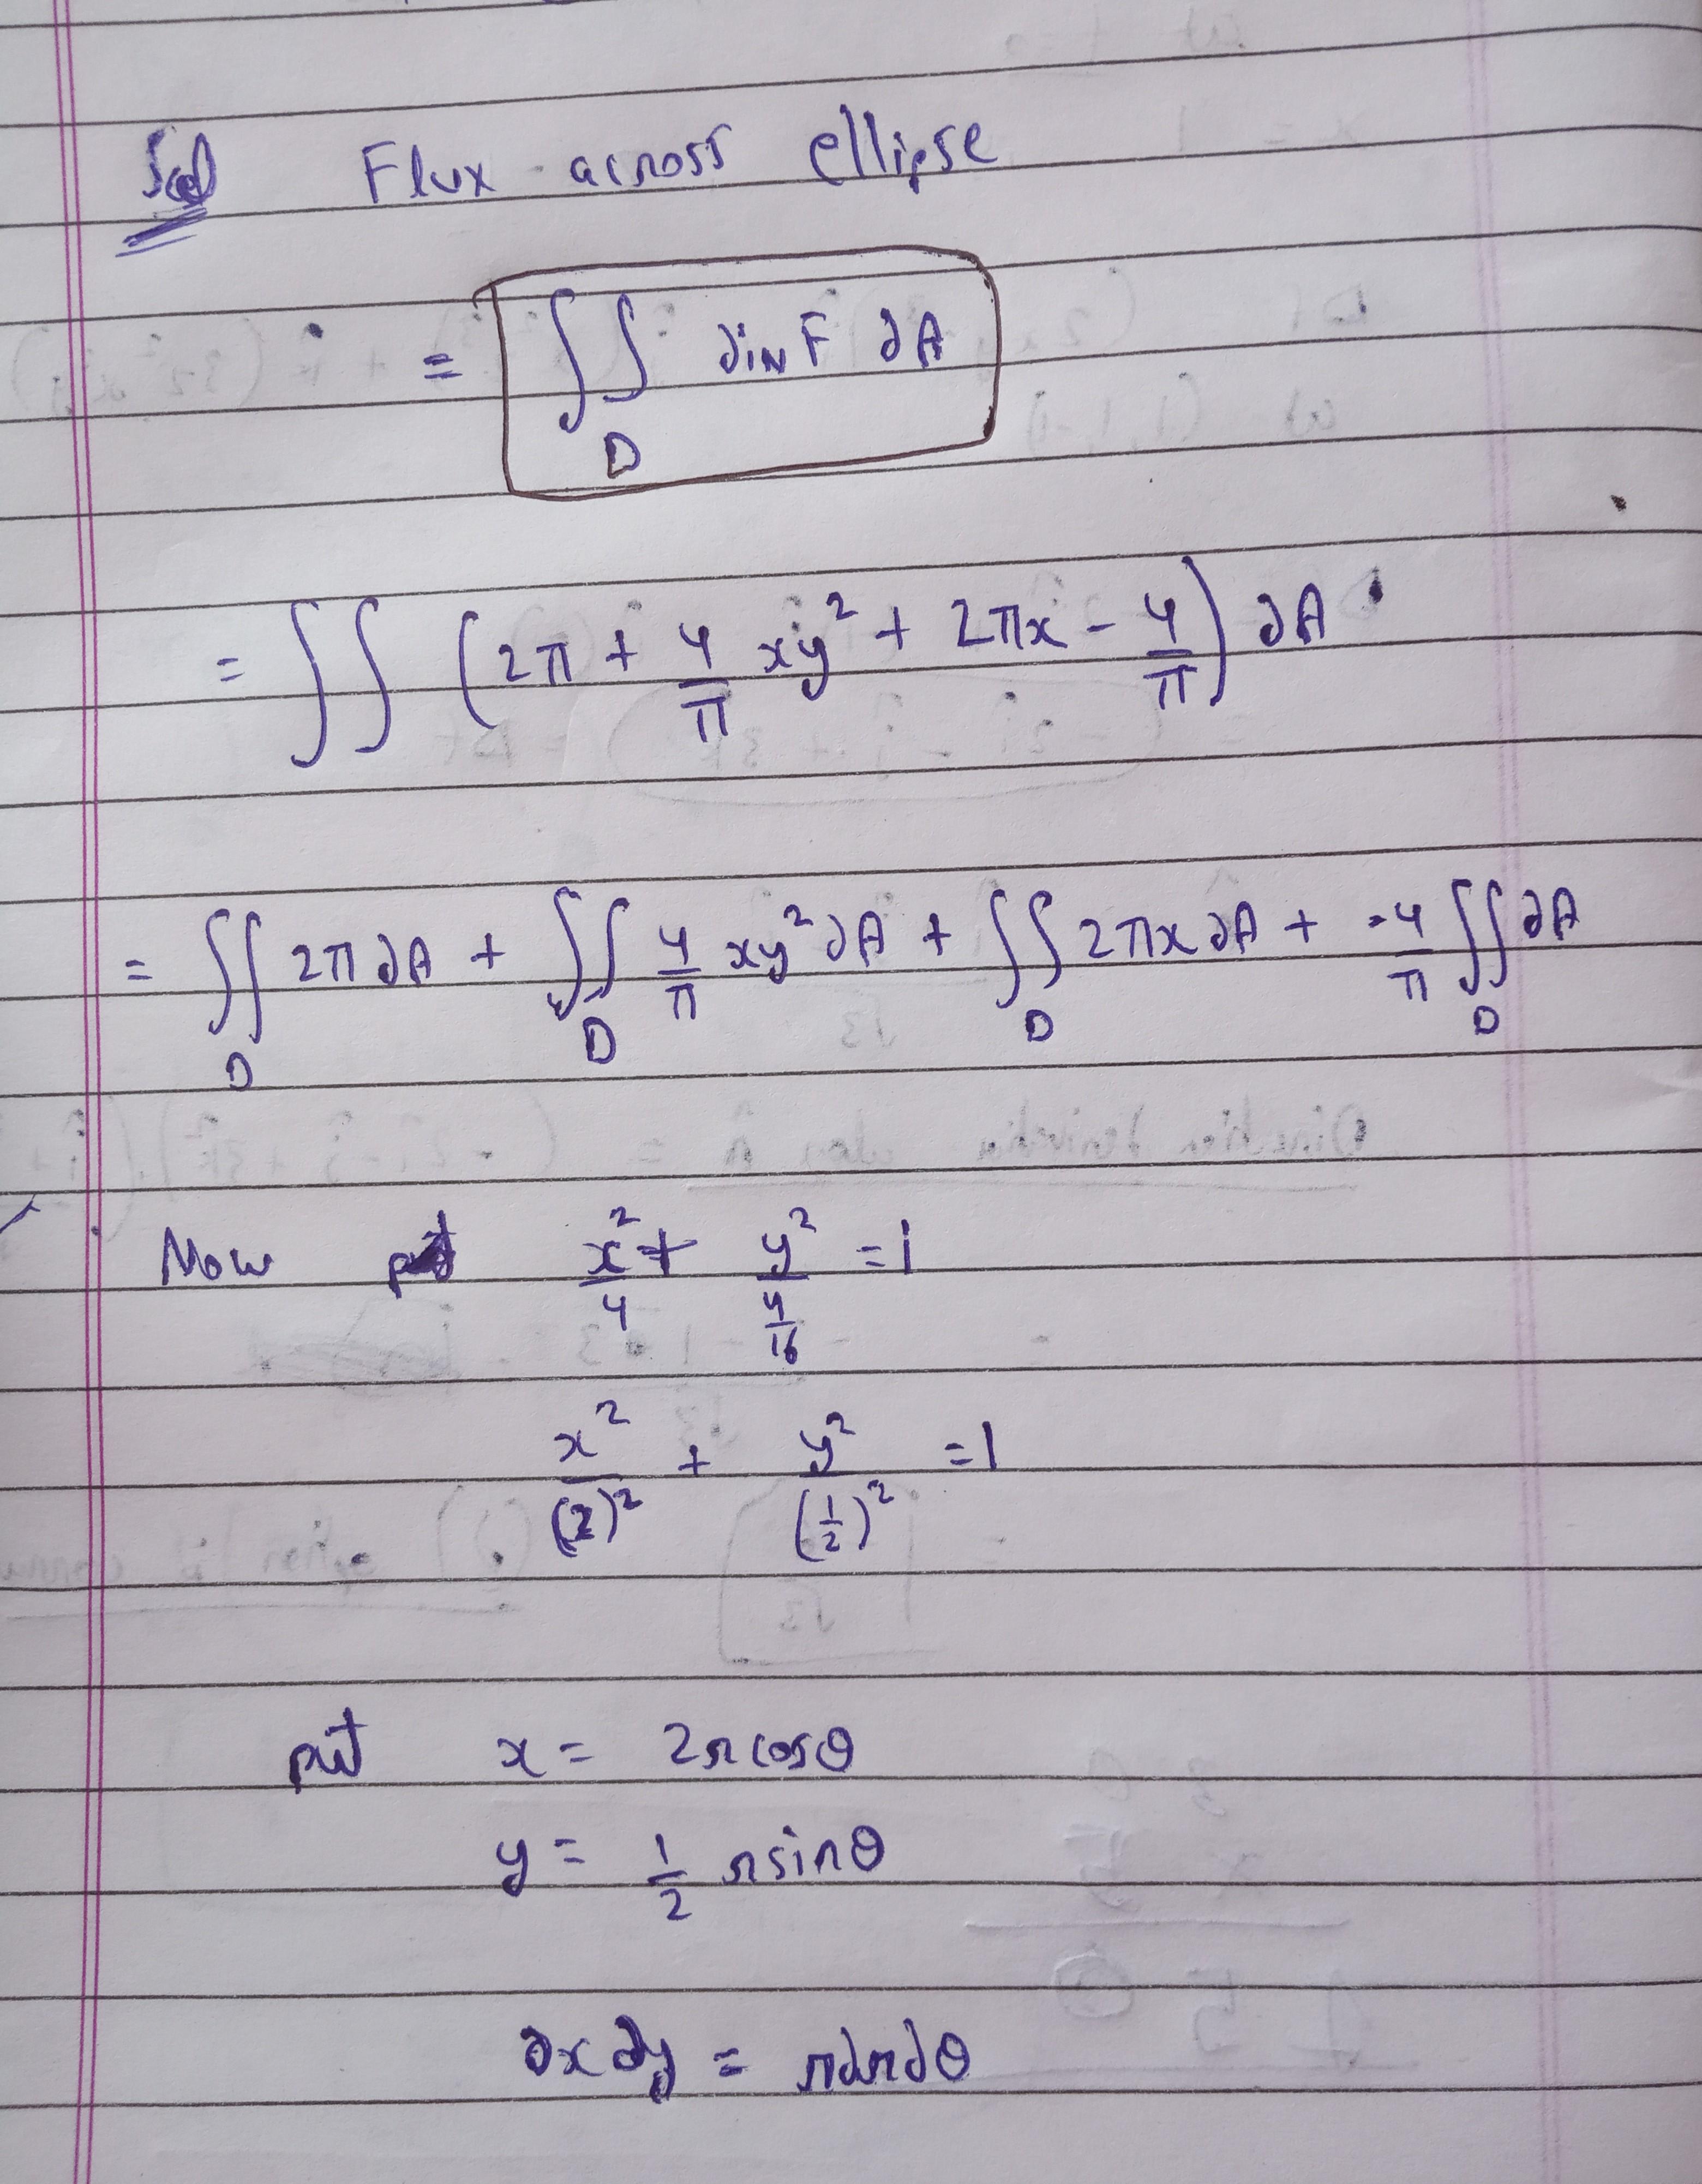 Sol Flux across ellipse
= ∬_D div F dA
= ∬ (2π + 4/π xy² + 2πx - 4/π) dA
= ∬_D 2π dA + ∬_D 4/π xy² dA + ∬_D 2πx dA + -4/π ∬_D dA
Now put x²/4 + y²/(4/16) = 1
x²/(2)² + y²/(1/2)² = 1
put x = 2r cosθ
y = 1/2 r sinθ
dx dy = r dr dθ